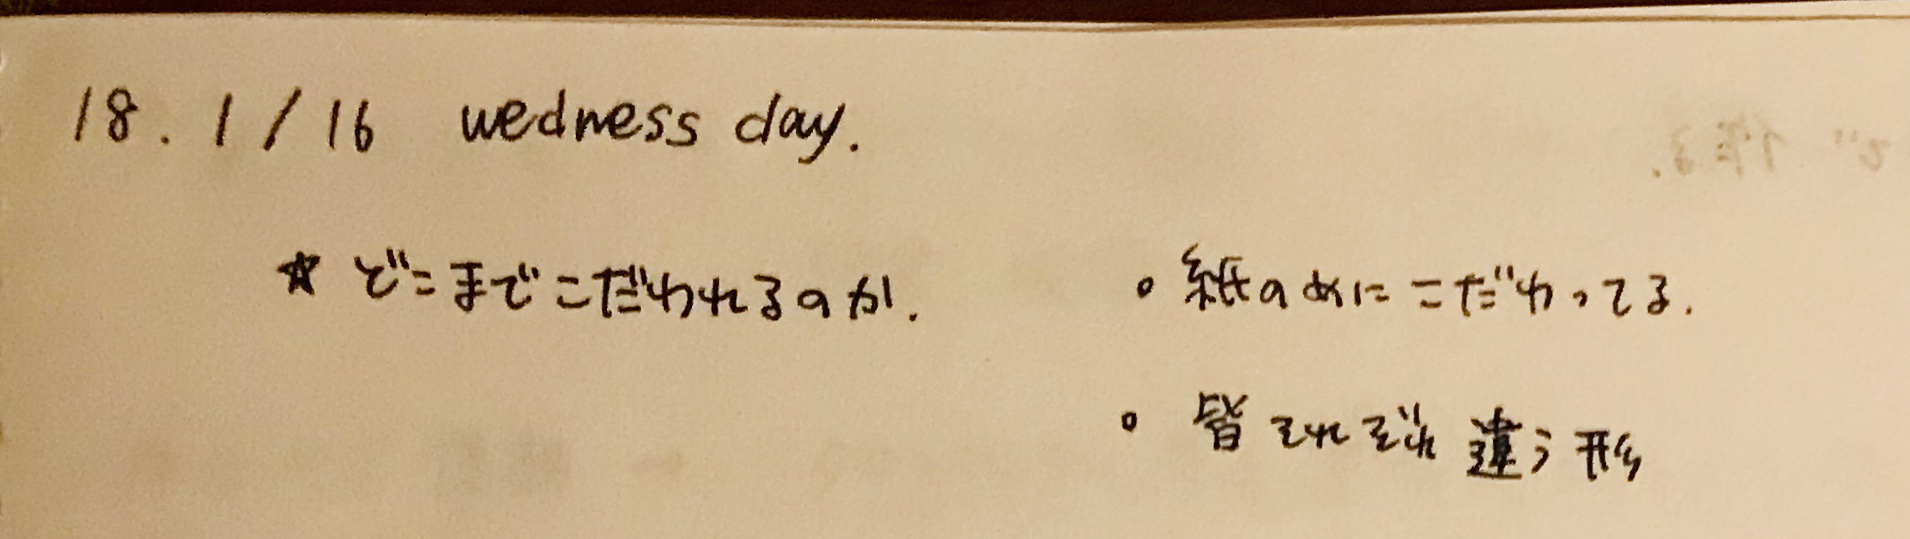 18. 1/16 wedness day.
☆ どこまでこだわれるのか.
。紙のめにこだわってる.
。皆それぞれ違う形